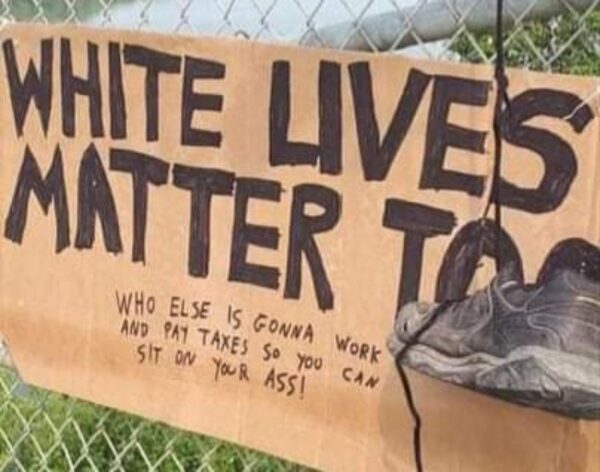 WHITE LIVES
MATTER TOO
WHO ELSE IS GONNA WORK
AND PAY TAXES SO YOU CAN
SIT ON YOUR ASS!